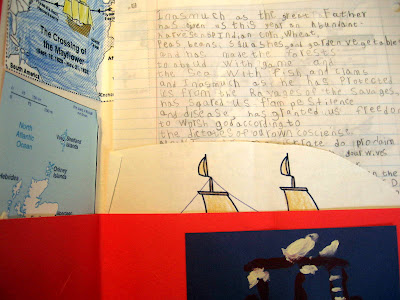 The Crossing of
the Mayflower
South America
North
Atlantic
Ocean
Shetland
Islands
Orkney
Islands
Hebrides
Inasmuch as the great Father
has given us this year an abundant
harvest of Indian corn, wheat,
Peas, beans, squashes, and garden vegetables
and has made the forests
to abound with game and
the sea with fish and clams
and inasmuch as he has protected
us from the Ravages of the Savages,
has spared us from pestilence
and disease, has granted us freedom
to worship god according to
the dictates of our own conscience.
do proclaim
wives
in the